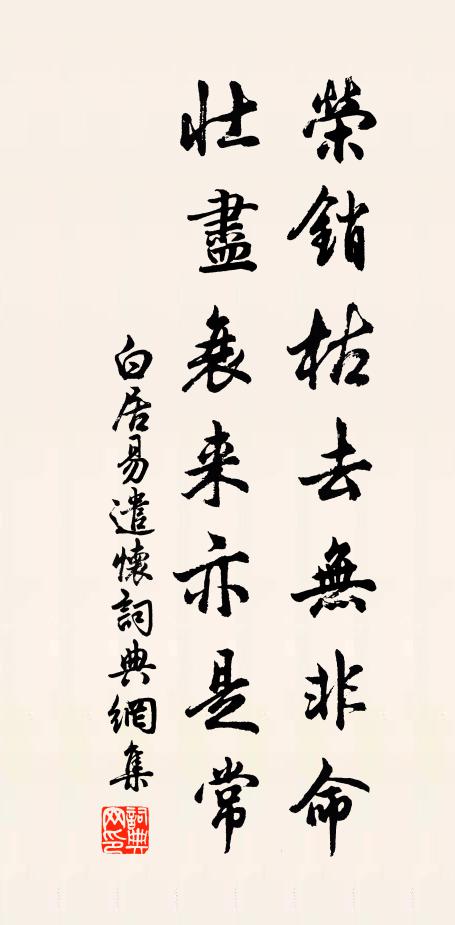 榮銷枯去無非命
壯盡衰来亦是常
白居易遣懷詞典網集
詞典网印